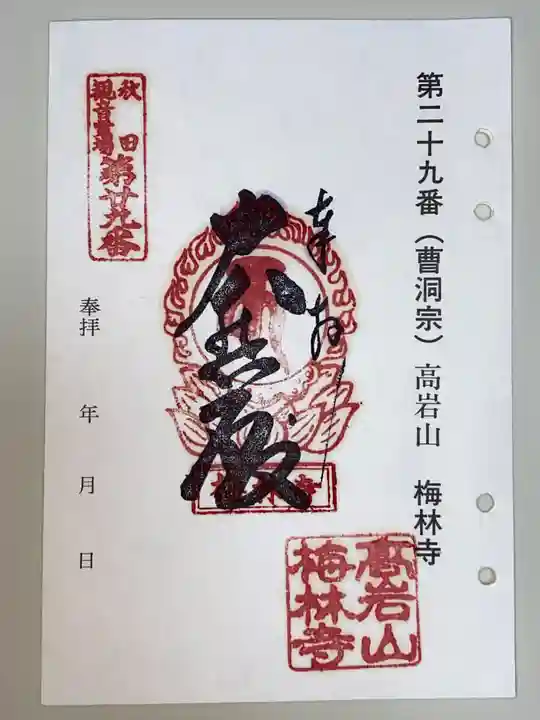 第二十九番（曹洞宗）高岩山　梅林寺
奉拝
大悲殿
秋田
観音霊場
第廿九番
奉拝　年　月　日
梅林寺
高岩山
梅林寺